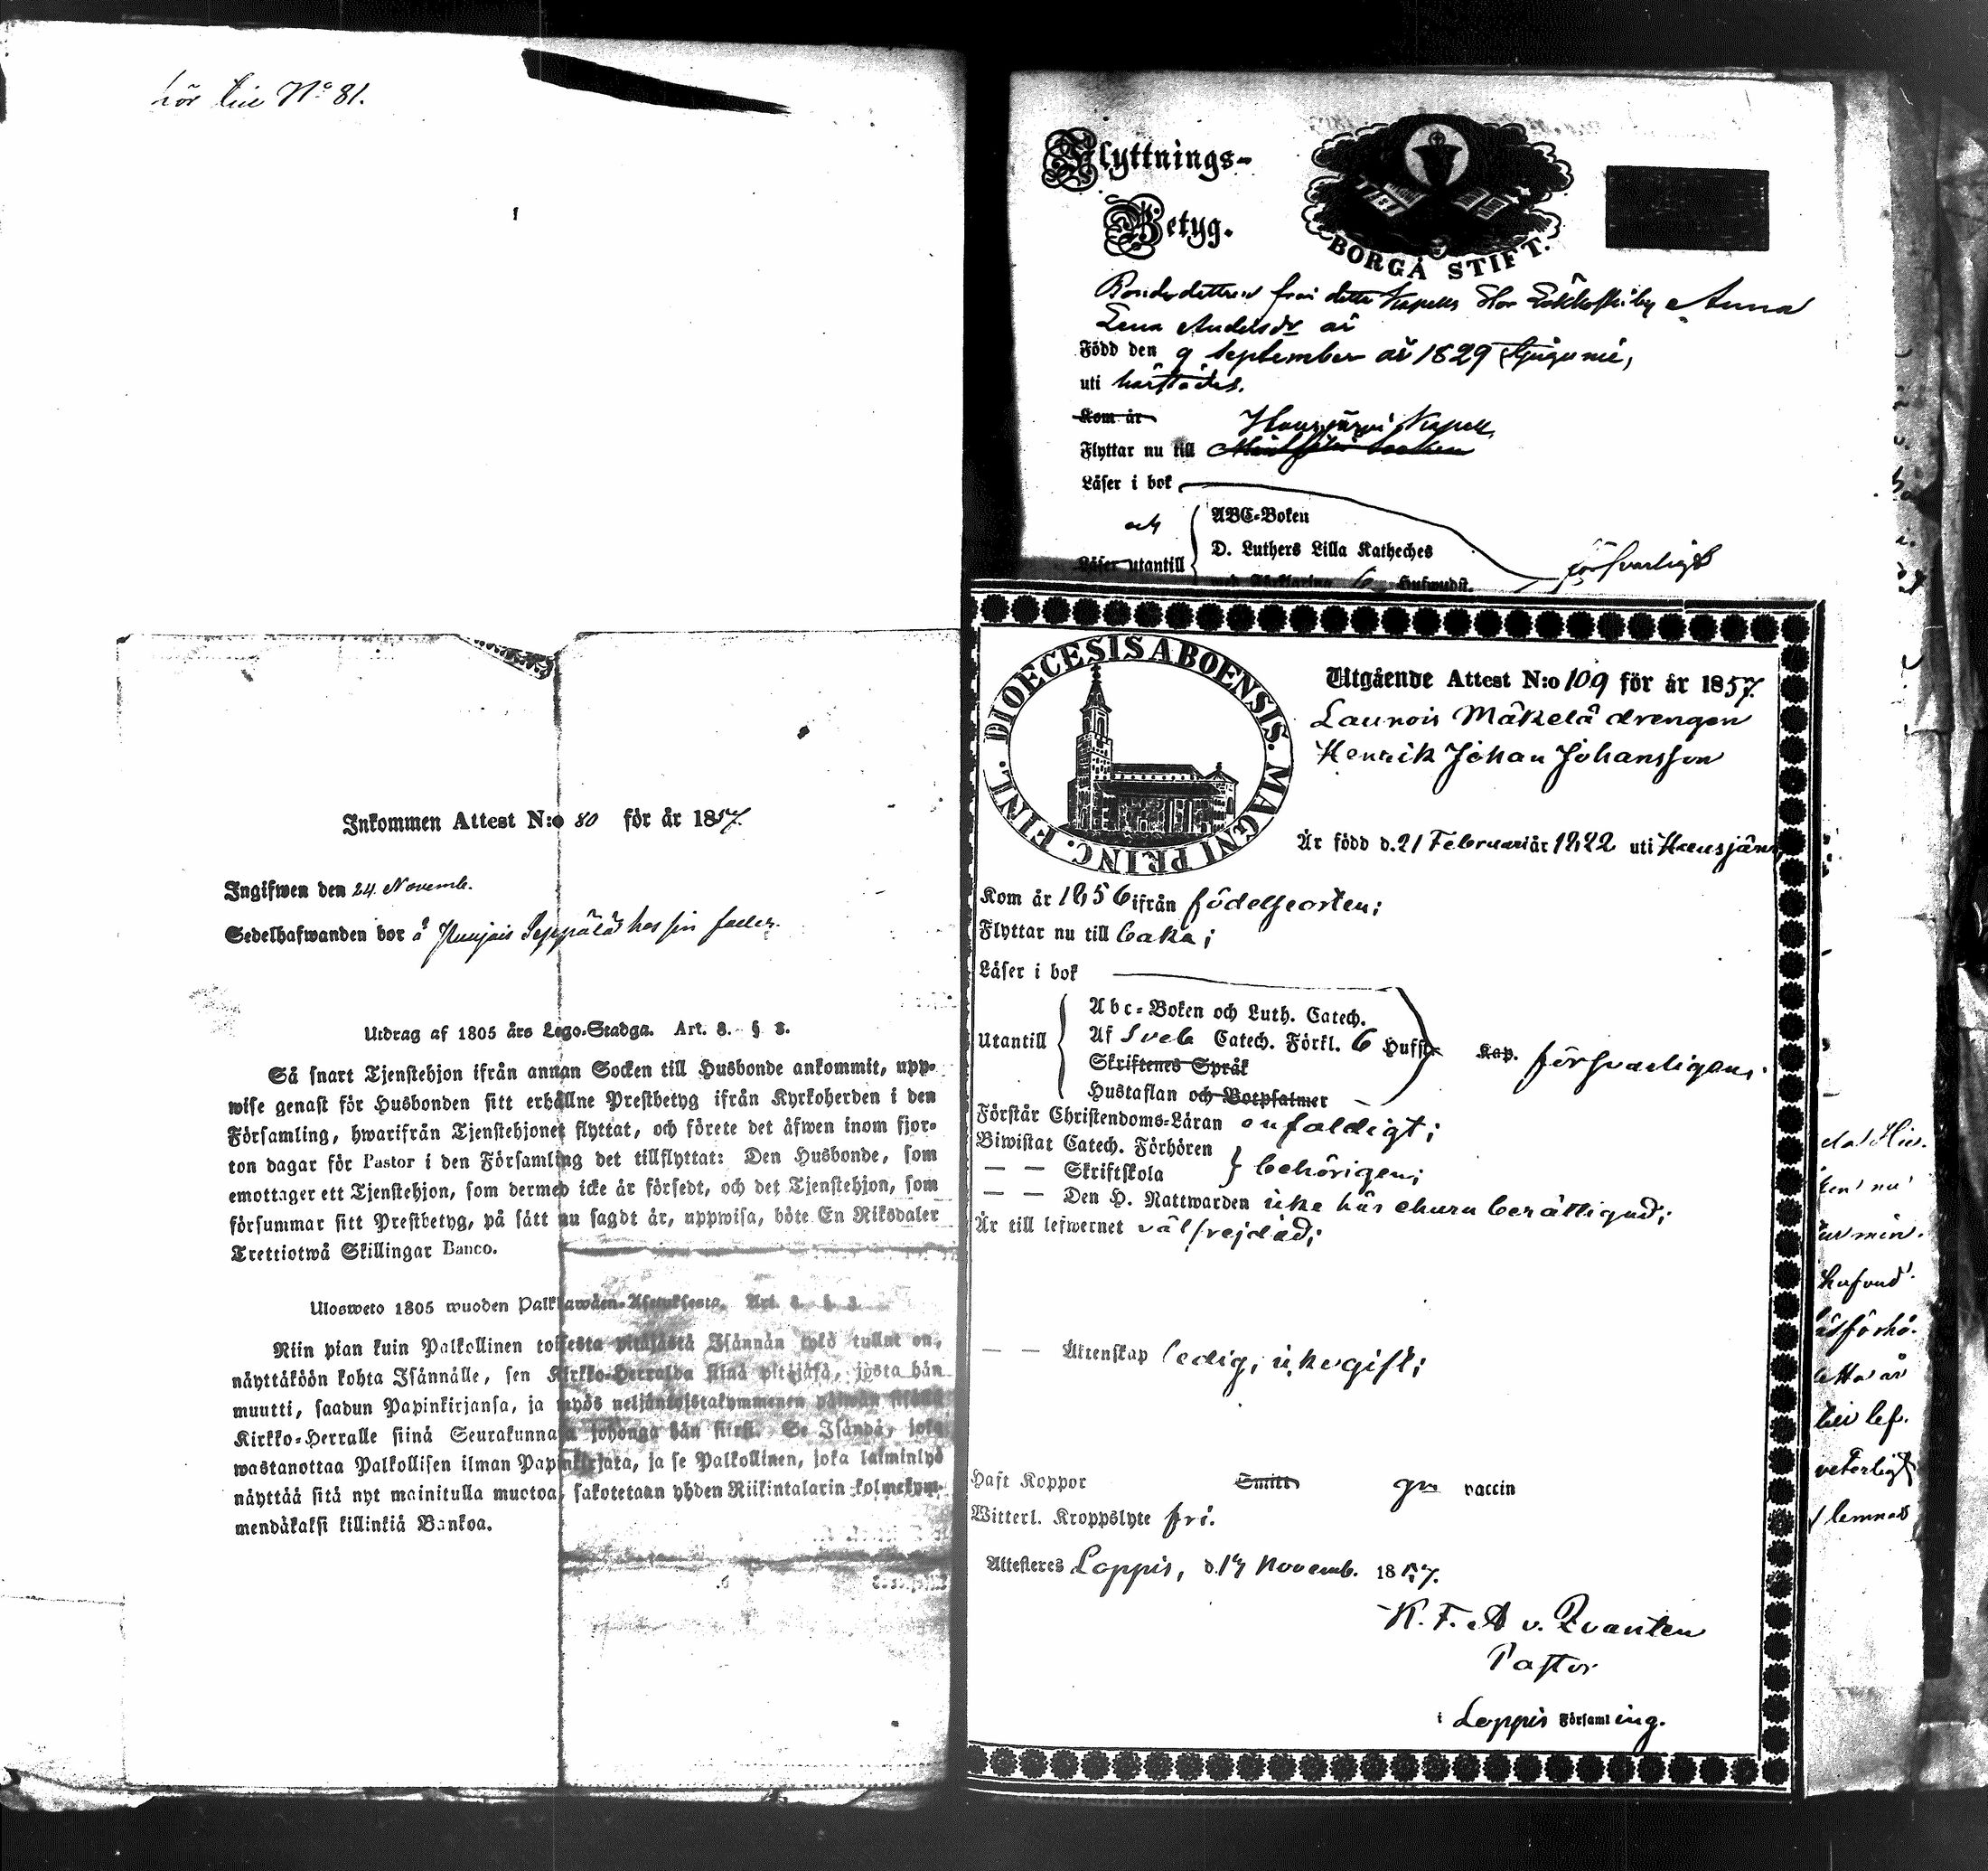 hör till No 81.
Inkommen Attest N:o 80 för år 1857.
Ingifwen den 24 Novemb.
Sedelhafwanden bor å Punjais Seppälä hos sin fader.
Utdrag af 1805 års Lego-Stadga. Art. 8. § 3.
Så snart Tjenstehjon ifrån annan Socken till Husbonde ankommit, upp-
wise genast för Husbonden sitt erhållne Prestbetyg ifrån Kyrkoherden i den
Församling, hwarifrån Tjenstehjonet flyttat, och förete det äfwen inom fjor-
ton dagar för Pastor i den Församling det tillflyttat: Den Husbonde, som
emottager ett Tjenstehjon, som dermed icke är försedt, och det Tjenstehjon, som
försummar sitt Prestbetyg, på sätt nu sagdt är, uppwisa, böte En Riksdaler
Trettiotwå Skillingar Banco.
Ulosweto 1805 wuoden Palkkawäen-Asetuksesta. Art. 8. § 3.
Niin pian kuin Palkollinen toisesta pitäjästä Isännän tykö tullut on,
näyttäköön kohta Isännälle, sen Kirkko-Herralda siinä pitäjäsä, josta hän
muutti, saadun Papinkirjansa, ja myös neljäntoistakymmenen päiwän sisällä
Kirkko-Herralle siinä Seurakunnasa johonga hän siirsi. Se Isändä, joka
wastanottaa Palkollisen ilman Papinkirjata, ja se Palkollinen, joka laiminlyö
näyttää sitä nyt mainitulla muotoa, sakotetaan yhden Riikintalarin kolmekym-
mendäkaksi killinkiä Bankoa.
Flyttnings-
Betyg.
BORGÅ STIFT.
Bondedottren från detta Kapells Anna
Lena Andersdr är
Född den 9 September år 1829 tjugunie,
uti härstädes.
Kom år
Hausjärvi Kapell
Flyttar nu till
Läser i bok
och
Läser utantill
ABC-Boken
D. Luthers Lilla Katheches
d:o Förklaring 6 Hufwudst.
försvarligt
DIOECESIS ABOENSIS. MAGNI PRINC. FINL.
Utgående Attest N:o 109 för år 1857.
Launois Mäkelä drengen
Henrik Johan Johansson
Är född d. 21 Februari år 1822 uti Hausjärvi
Kom år 1856 ifrån födelseorten;
Flyttar nu till baka;
Läser i bok
Utantill
Abc-Boken och Luth. Catech.
Af Sveb Catech. Förkl. 6 Hufst. Kap. försvarligen;
Skriftenes Språk
Hustaflan och Botpsalmer
Förstår Christendoms-Läran enfaldigt;
Biwistat Catech. Förhören
— — Skriftskola behörigen;
— — Den H. Nattwarden icke här ehuru berättigad;
Är till lefwernet välfrejdad;
— — Äktenskap ledig, icke gift;
Haft Koppor Smitt gm vaccin
Witterl. Kroppslyte fri.
Attesteres Loppis, d. 17 Novemb. 1857.
K. F. A v. Qvanten
Pastor
i Loppis Församling.